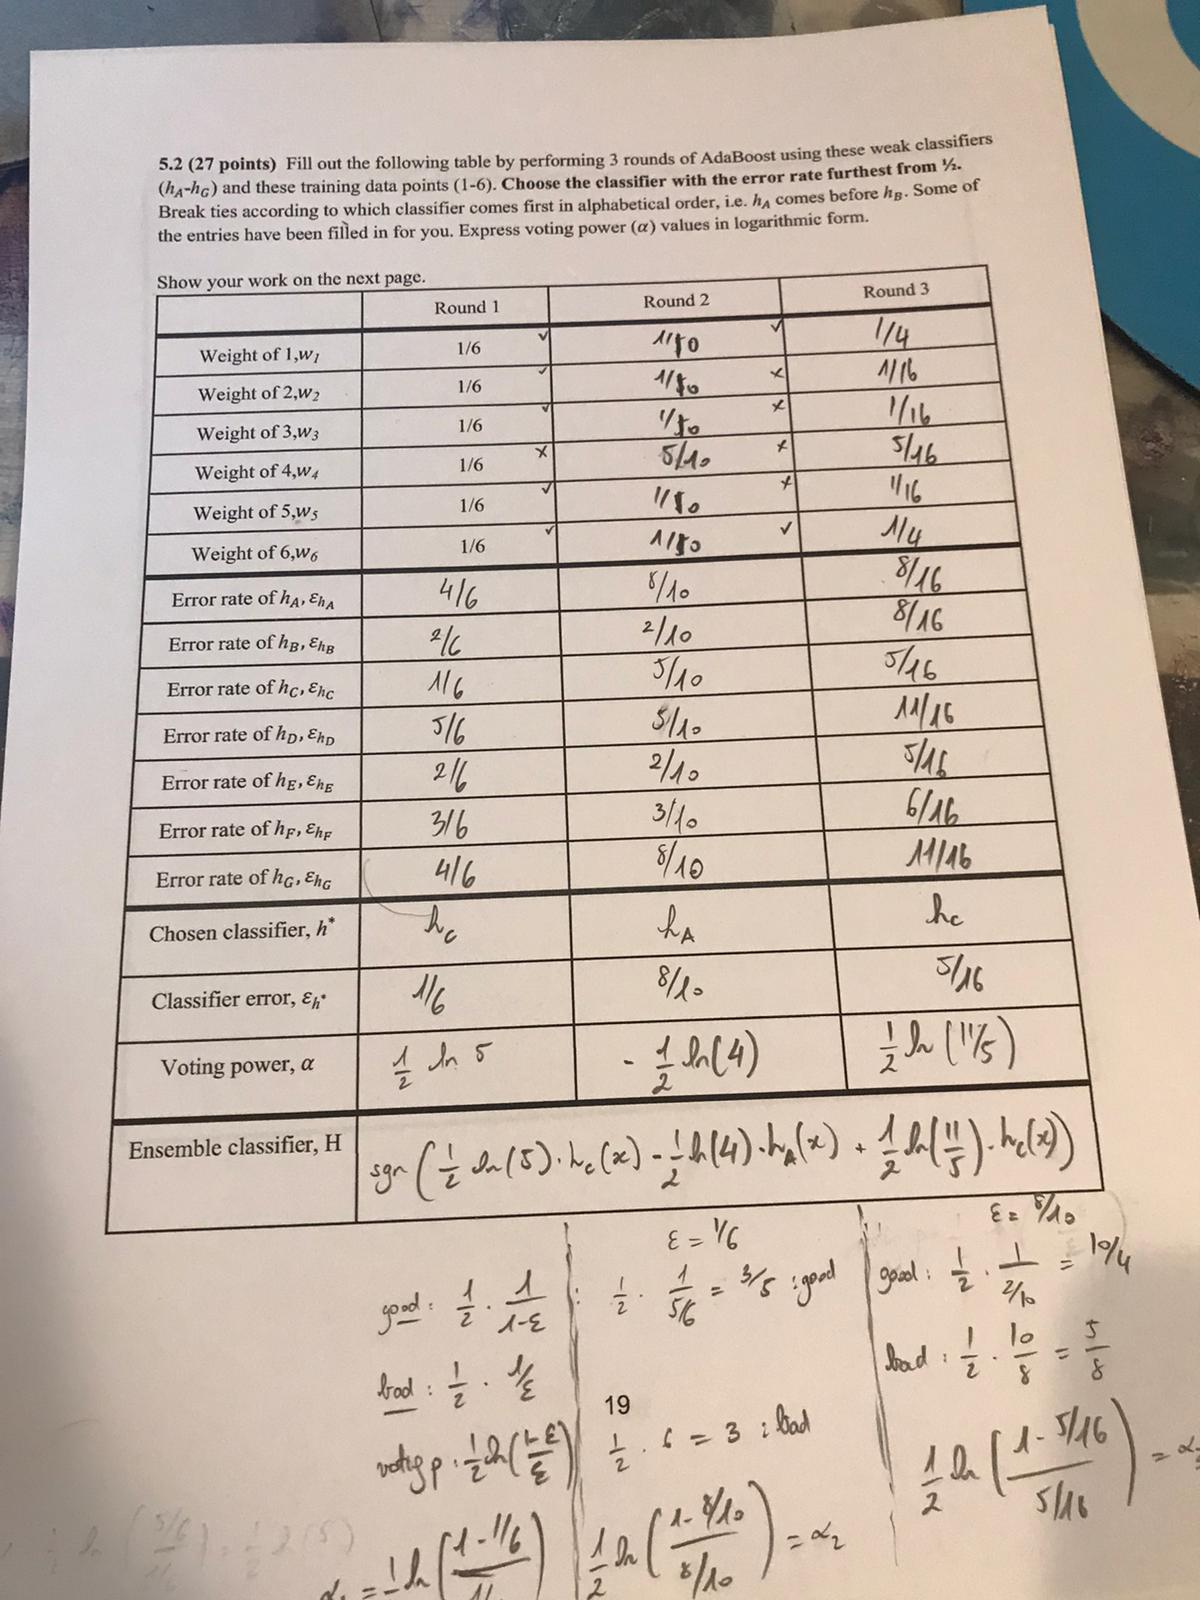 5.2 (27 points) Fill out the following table by performing 3 rounds of AdaBoost using these weak classifiers
(hA-hG) and these training data points (1-6). Choose the classifier with the error rate furthest from ½.
Break ties according to which classifier comes first in alphabetical order, i.e. hA comes before hB. Some of
the entries have been filled in for you. Express voting power (α) values in logarithmic form.
Show your work on the next page.
Round 1 Round 2 Round 3
Weight of 1,w1 1/6 ✓ 1/10 ✓ 1/4
Weight of 2,w2 1/6 ✓ 1/10 × 1/16
Weight of 3,w3 1/6 ✓ 1/10 × 1/16
Weight of 4,w4 1/6 × 5/10 × 5/16
Weight of 5,w5 1/6 ✓ 1/10 × 1/16
Weight of 6,w6 1/6 ✓ 1/10 ✓ 1/4
Error rate of hA, εhA 4/6 8/10 8/16
Error rate of hB, εhB 2/6 2/10 8/16
Error rate of hC, εhC 1/6 5/10 5/16
Error rate of hD, εhD 5/6 5/10 11/16
Error rate of hE, εhE 2/6 2/10 5/16
Error rate of hF, εhF 3/6 3/10 6/16
Error rate of hG, εhG 4/6 8/10 11/16
Chosen classifier, h* hC hA hC
Classifier error, εh* 1/6 8/10 5/16
Voting power, α 1/2 ln 5 - 1/2 ln(4) 1/2 ln(11/5)
Ensemble classifier, H sgn(1/2 ln(5)·hC(x) - 1/2 ln(4)·hA(x) + 1/2 ln(11/5)·hC(x))
ε = 1/6 ε = 8/10
good: 1/2 · 1/1-ε : 1/2 · 1/5/6 = 3/5 : good good: 1/2 · 1/2/10 = 10/4
bad: 1/2 · 1/ε bad: 1/2 · 10/8 = 5/8
19
voting p: 1/2 ln(1-ε/ε) 1/2 · 6 = 3 : bad 1/2 ln(1-5/16/5/16) = α
= 1/2 ln(1-1/6 1/2 ln(1-8/10/8/10) = α2